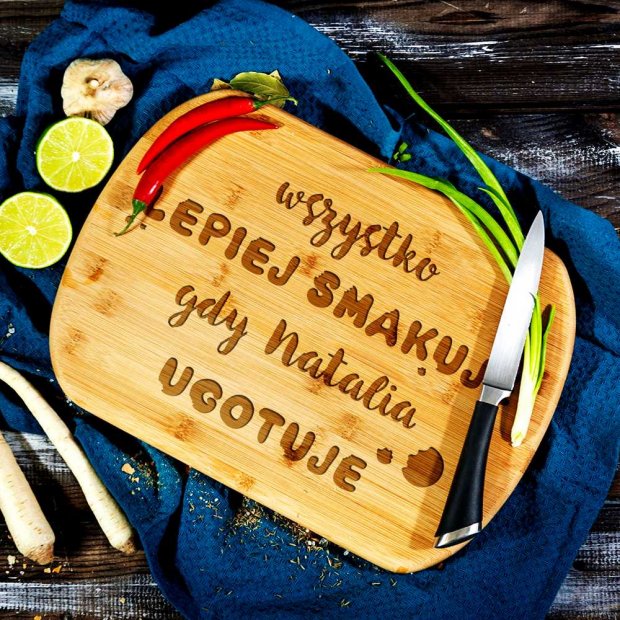 wszystko
LEPIEJ SMAKUJE
gdy Natalia
UGOTUJE